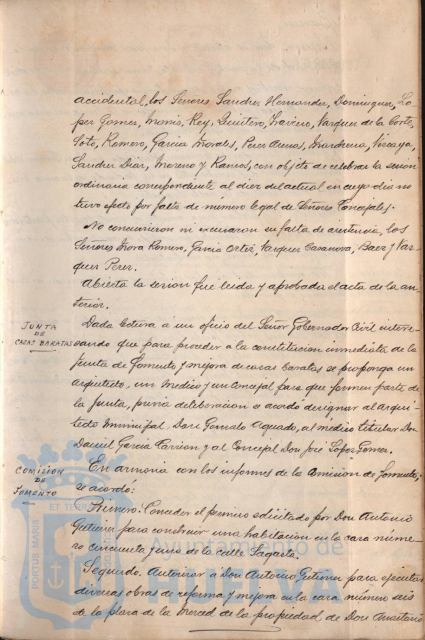 accidental, los Señores Sanchez Hernandez, Dominguez, Lo-
pez Gomez, Monis, Rey, Quintero, Traviero, Vazquez de la Corte,
Soto, Romero, Garcia Morales, Perez Armas, Marchena, Vizcaya,
Sanchez Diaz, Moreno y Ramos, con objeto de celebrar la sesion
ordinaria correspondiente al diez del actual en cuyo dia no
tuvo efecto por falta de número legal de Señores Concejales.
No concurrieron ni excusaron su falta de asistencia, los
Señores Mora Romero, Garcia Ortiz, Vazquez Casanova, Baez y Vaz-
quez Perez.
Abierta la sesion fué leida y aprobada el acta de la an-
terior.
JUNTA
DE
CASAS BARATAS
Dada lectura á un oficio del Señor Gobernador Civil intere-
sando que para proceder á la constitucion inmediata de la
Junta de Fomento y mejora de casas baratas se proponga un
arquitecto, un Medico y un Concejal para que formen parte de
la Junta, previa deliberacion se acordó designar al arqui-
tecto Municipal Don Gonzalo Aguado, al medico titular Don
Daniel Garcia Carrion y al Concejal Don José Lopez Gomez.
COMISION
DE
FOMENTO
En armonia con los informes de la Comision de Fomento,
se acordó:
Primero: Conceder el permiso solicitado por Don Antonio
Gutierrez para construir una habitacion en la casa núme-
ro cincuenta y uno de la calle Sagasta.
Segundo. Autorizar á Don Antonio Gutierrez para ejecutar
diversas obras de reforma y mejora en la casa número seis
de la plaza de la Merced de la propiedad de Don
PORTUS MARIS
ET TERR
Ayuntamiento de